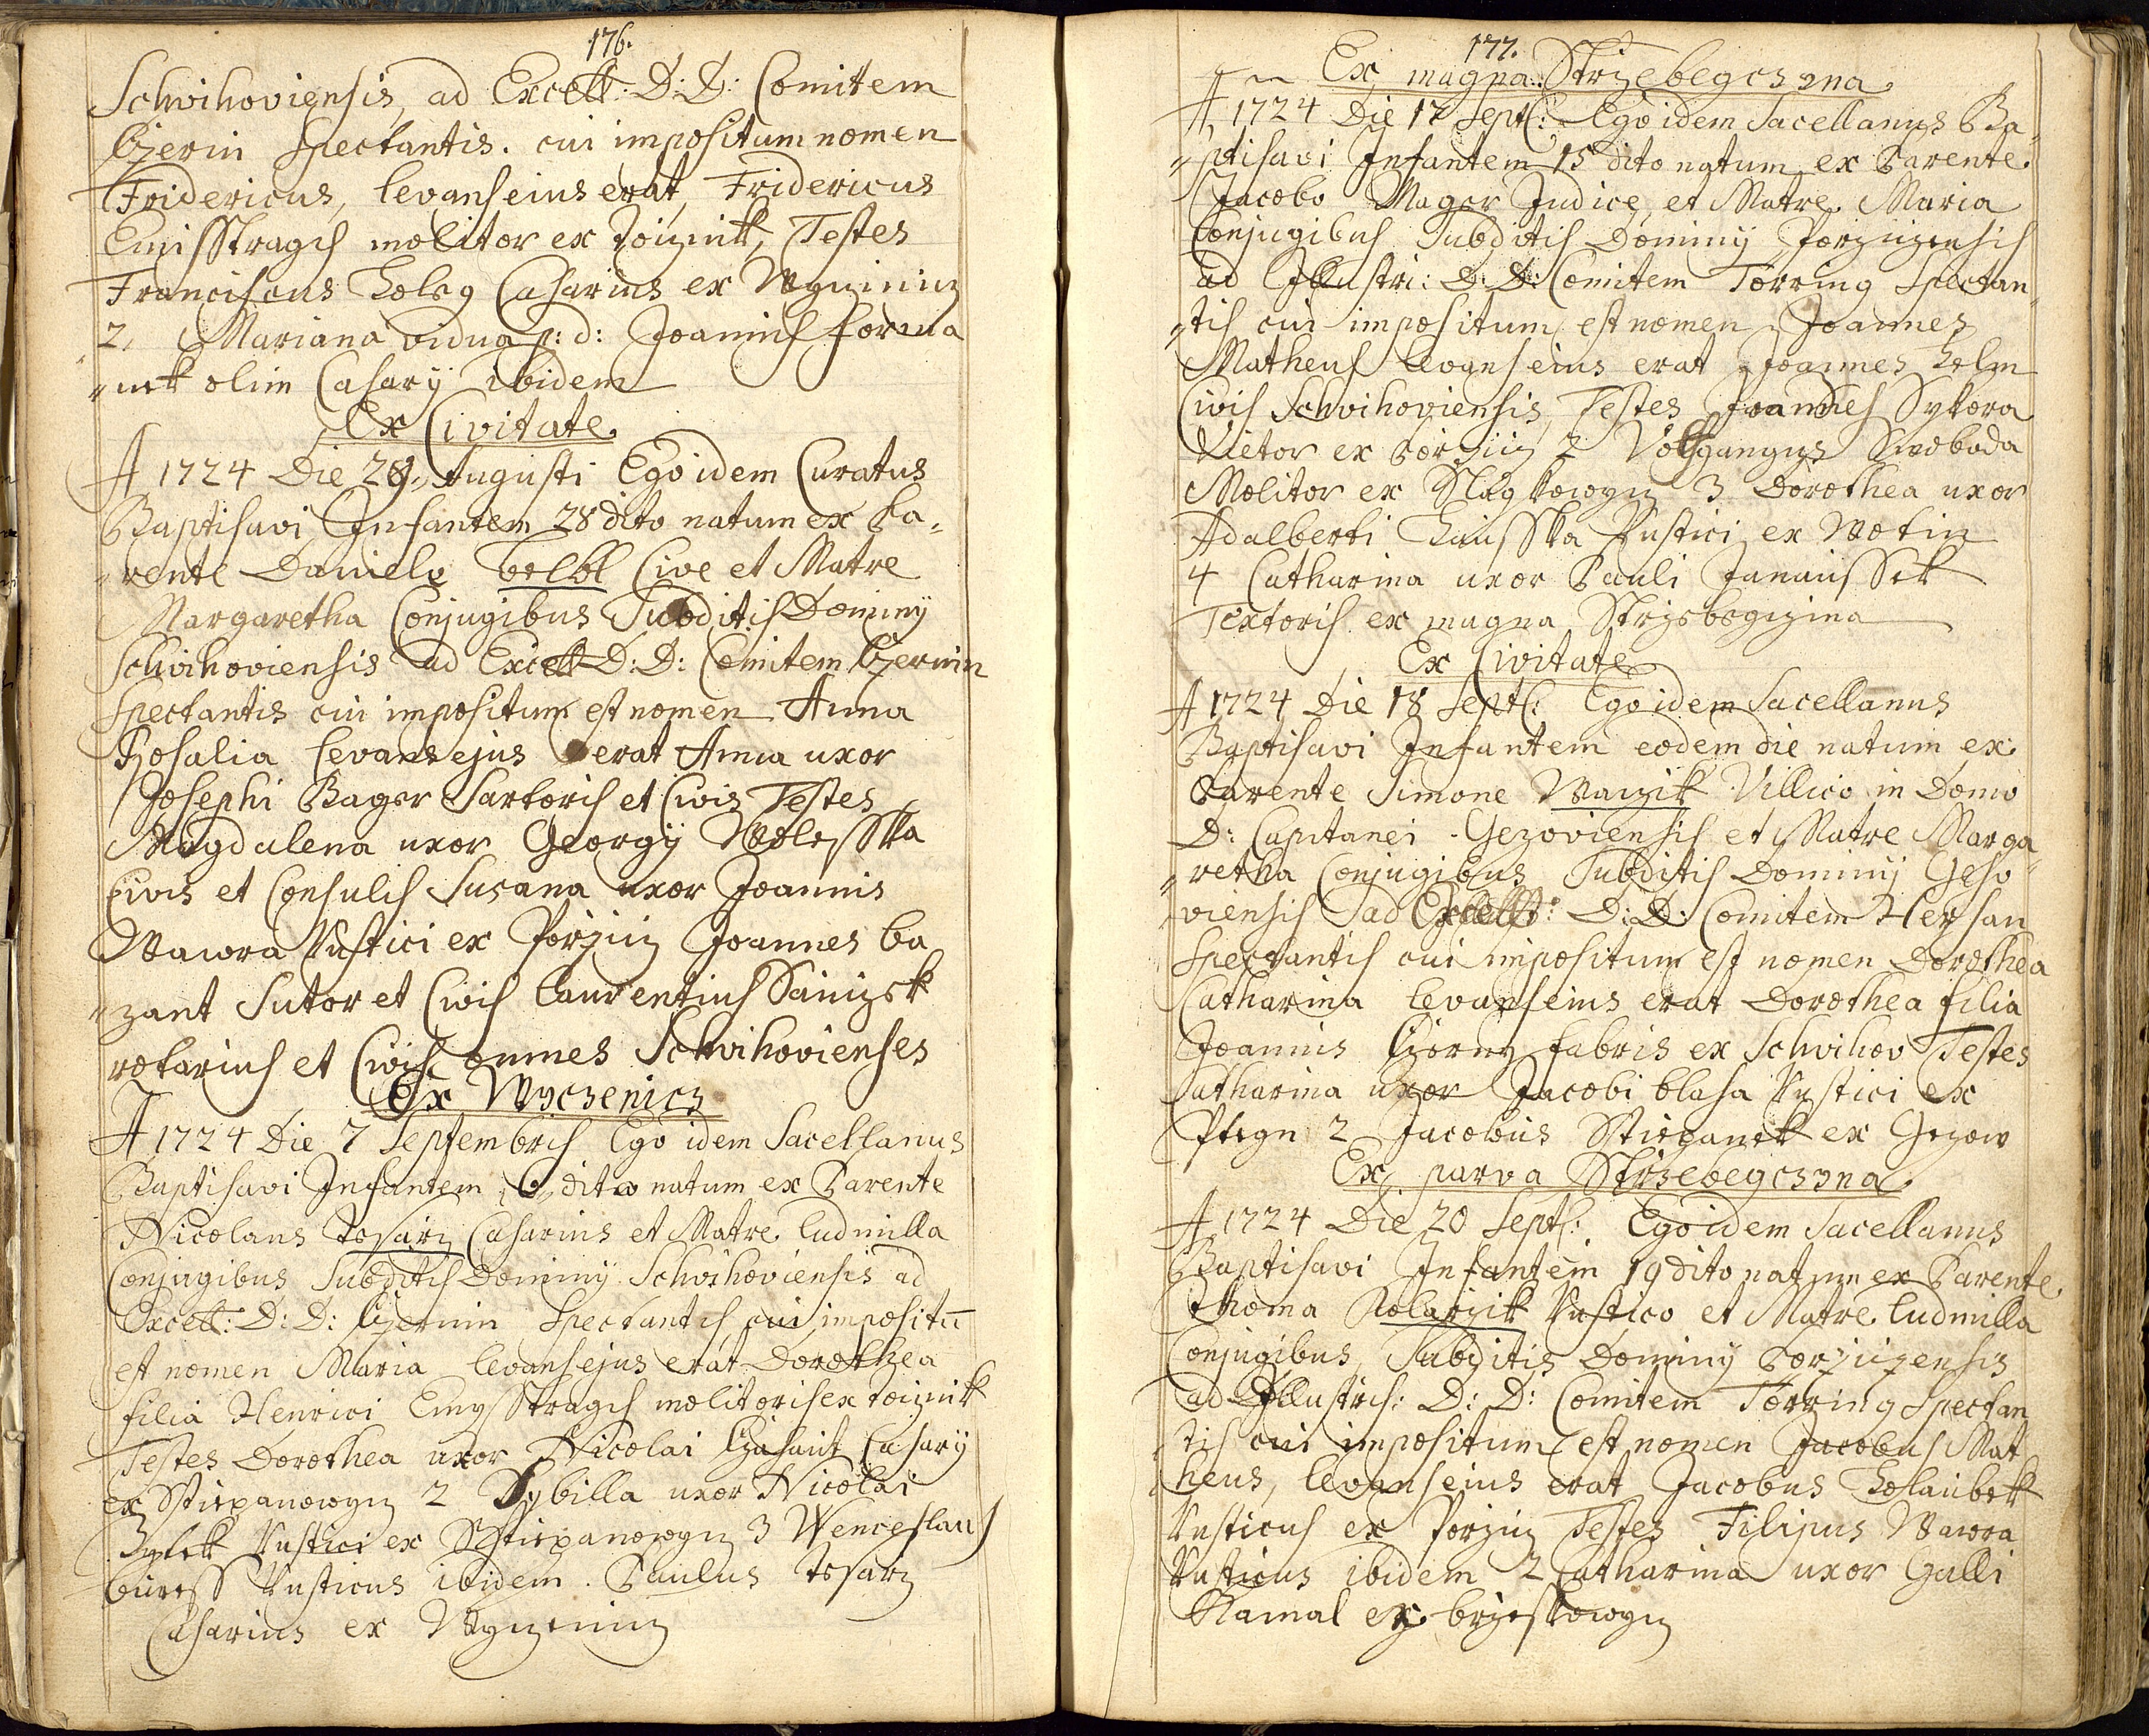 176.
Schvihoviensis, ad Excell: D: D: Comitem
Czerin Spectantis. cui impositum nomen
Fridericus, levans eius erat, Fridericus
molitor ex Testes
Franciscus Casarius ex
2. Mariana vidua p: d: Joannis
olim Casarÿ ibidem
Ex Civitate
A 1724 Die 29. Augusti Ego idem Curatus
Baptisavi Infantem 28 dito natum ex Pa„
„rente Daniele Cive et Matre
Margaretha Conjugibus Subditis Dominÿ
Schvihoviensis ad Excell D: D: Comitem Czernin
Spectantis cui impositum est nomen Anna
Rosalia levans ejus erat Anna uxor
Josephi Bager Sartoris et Civis Testes
Magdalena uxor Georgÿ
Civis et Consulis Susana uxor Joannis
Wawra Rustici ex Porziz Joannes ba
„zant Sutor et Civis Laurentius
rotarius et Civis omnes Schvihovienses
Ex Wyczenicz
A 1724 Die 7 Septembris Ego idem Sacellanus
Baptisavi Infantem 6 dito natum ex Parente
Nicolaus tesarz Casarius et Matre Ludmilla
Conjugibus Subditis Dominÿ Schvihoviensis ad
Excell: D: D: Czernin Spectantis cui impositū
est nomen Maria levans ejus erat Dorothea
filia Henrici molitoris ex
Testes Dorothea uxor Nicolai Casarÿ
ex Stiepanowycz 2 Sybilla uxor Nicolai
Rustici ex Stiepanowycz 3 Wenceslaus
buress Rusticus ibidem. Paulus tesarz
Casarius ex
177.
Ex magna Strzebegczyna
A 1724 Die 17 Sept: Ego idem Sacellanus Ba„
„ptisavi Infantem 15 dito natum ex Parente
Jacobo Mager Judice, et Matre Maria
Conjugibus Subditis Dominÿ Porzizensis
ad Illustri: D: D: Comitem Torring Spectan„
„tis cui impositum est nomen Joannes
Matheus levans eius erat Joannes
Civis Schvihoviensis, Testes Joannes Sykora
Vietor ex Porziz 2 Volfgangus Swoboda
Molitor ex 3 Dorothea uxor
Adalberti Rustici ex Wotin
4 Catharina uxor Pauli Janaussek
Textoris ex magna Strzebegczina
Ex Civitate
A 1724 Die 18 Sept: Ego idem Sacellanus
Baptisavi Infantem eodem die natum ex
Parente Simone Waczik Villico in Domo
D: Capitanei Gezoviensis et Matre Marga„
„retha Conjugibus Subditis Dominÿ Geso„
viensis ad Excell: D: D: Comitem Hersan
Spectantis cui impositum est nomen Dorothea
Catharina levans eius erat Dorothea filia
Joannis Czerny fabris ex Schvihov Testes
Catharina uxor Jacobi blaha Rustici ex
Ptegn 2 Jacobus Stiepanek ex Gezow
Ex parva Strzebegczyna
A 1724 Die 20 Sept: Ego idem Sacellanus
Baptisavi Infantem 19 dito natum ex Parente
thoma Kolarzik Rustico et Matre Ludmilla
Conjugibus, Subditis Dominÿ Porzizensis
ad Illustris: D: D: Comitem Torring Spectan
tis cui impositum est nomen Jacobus Mat
heus, levans eius erat Jacobus Holaubek
Rusticus ex Porziz Testes Filipus Wawra
Rusticus ibidem 2 Catharina uxor Galli
ex brzeskowycz